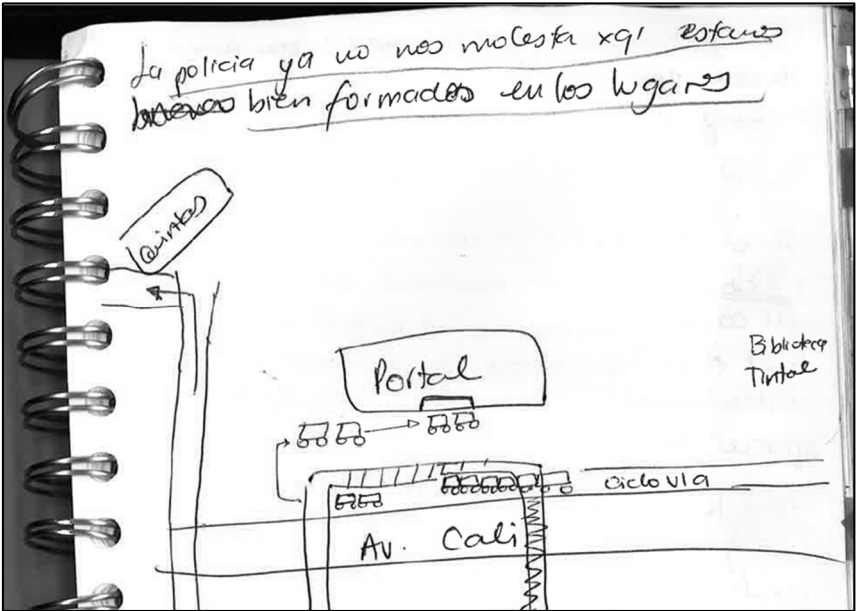 La policia ya no nos molesta xq' estamos
bien formados en los lugares
Quintas
Biblioteca
Tintal
Portal
ciclovia
Av. Cali